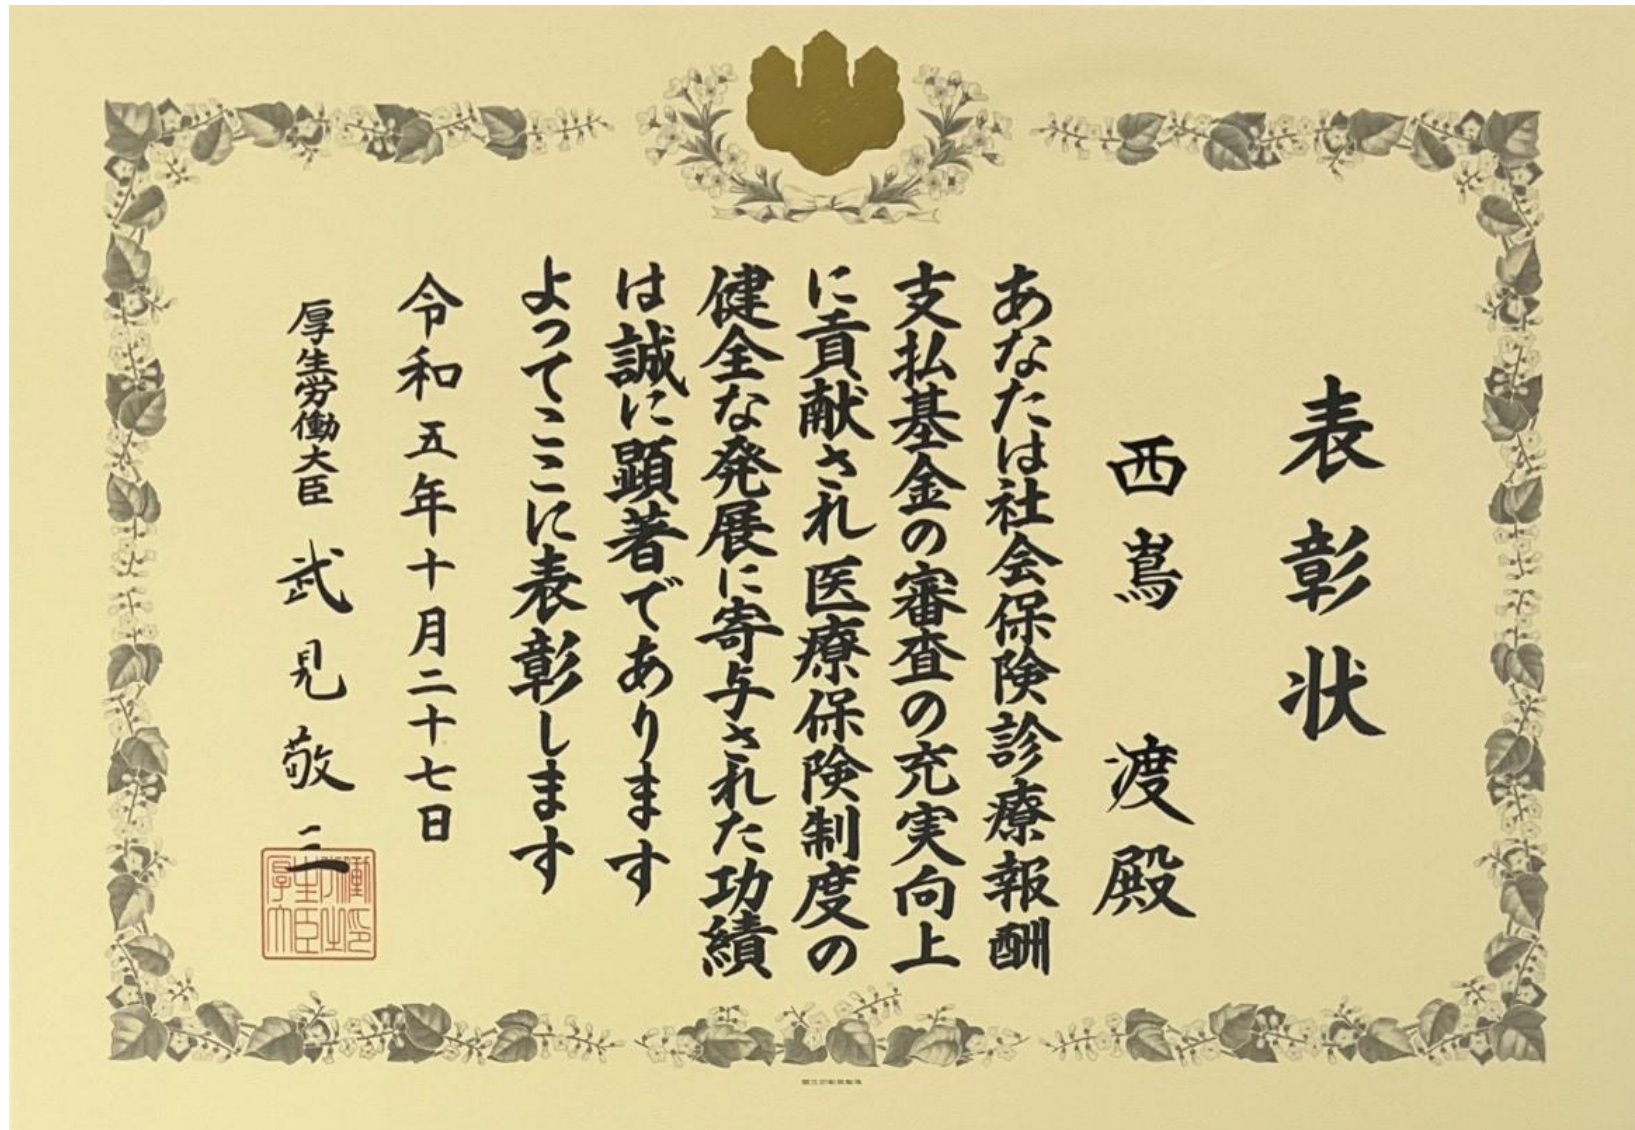 表彰状
西嶌 渡殿
あなたは社会保険診療報酬
支払基金の審査の充実向上
に貢献され医療保険制度の
健全な発展に寄与された功績
は誠に顕著であります
よってここに表彰します
令和五年十月二十七日
厚生労働大臣 武見敬三